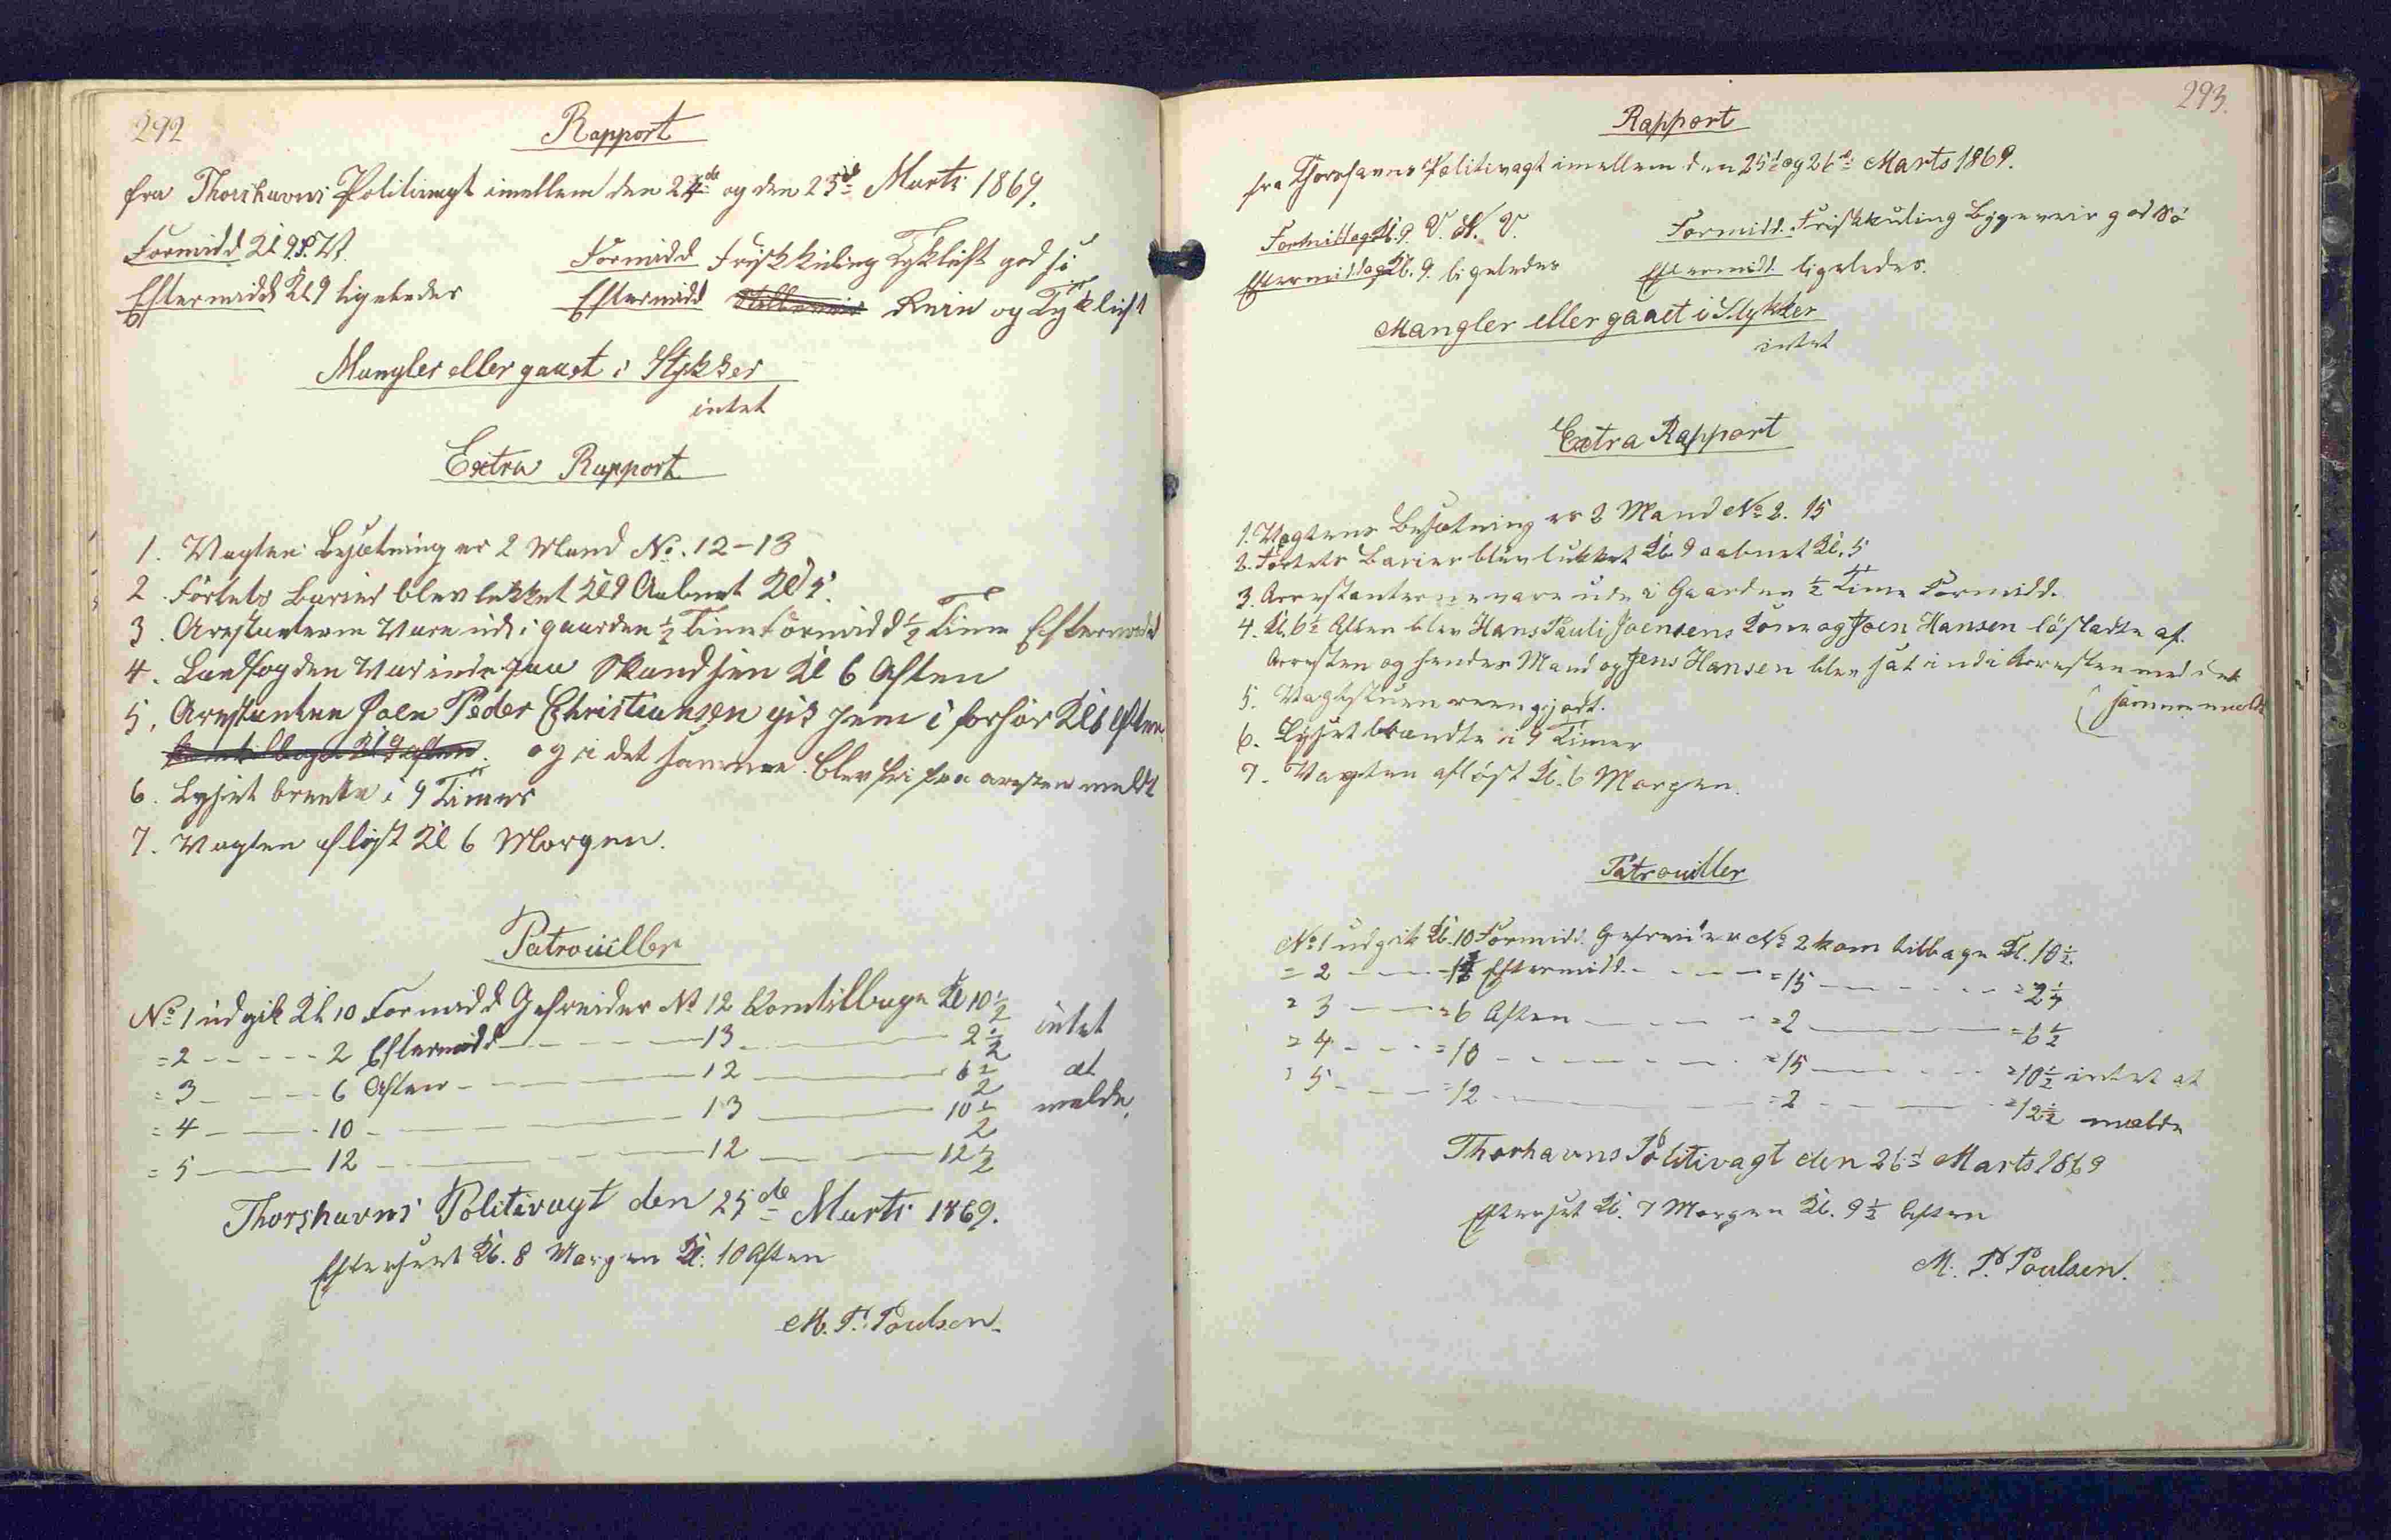 292
Rapport
fra Thorshavns Politivagt imellem den 24de og den 25de Marts 1869.
Formidd Kl 9 S. V.
Formidd Friskkuling Tykluft god sö
Eftermidd Kl 9 ligeledes
Eftermidd Rein og Tykluft
Mangler eller gaaet i Stykker
intet
Extra Rapport
1. Vagtens Besætning er 2 Mand No. 12-13
2. Förtets Barier blev lukket Kl 9 Aabnet Kl 5.
3. Arestanterne Vare ude i gaarden ½ Time Formidd ½ Time Eftermidd
4. Landfogden Var inde paa Skandsen Kl 6 Aften
5. Arestanten Joen Peder Christiansen gik hem i forhör Kl 6 Aften
og i det samme blev fri fra aresten meldt
6. Lyset brente i 9 Timer
7. Vagten aflöst Kl 6 Morgen.
Patrouiller
No 1 udgik Kl 10 Formidd Gefreider No 12 Kom tilbage Kl 10½
= 2 - - - - - 2 Eftermidd - - - - 13 - - - 2½ intet
= 3 - - - - 6 Aften - - - - 12 - - - 6½ at
= 4 - - - - 10 - - - - 13 - - - 10½ melde.
= 5 - - - - 12 - - - - 12 - - - 12½
Thorshavns Politivagt den 25de Marts 1869.
Efterseet Kl. 8 Morgen Kl. 10 Aften
M. P. Poulsen.
293.
Rapport
fra Thorshavns Politivagt imellem den 25d og 26d Marts 1869.
Formiddag Kl. 9. V. N. V.
Formidd. Friskkuling Bygeveir god Sö
Eftermiddag Kl. 9. ligeledes
Eftermidd. ligeledes.
Mangler eller gaaet i Stykker
intet
Extra Rapport
1. Vagtens Besætning er 2 Mand No 2. 15
2. Fortets Barier blev lukket Kl. 9 aabnet Kl. 5
3. Arrestanterne vare ude i Gaarden ½ Time Formidd.
4. Kl. 6½ Aften blev Hans Pauli Joensens Kone og Joen Hansen lösladte af
Arresten og hendes Mand og Jens Hansen blev sat ind i Arresten med det
samme meldt
5. Vagtstuen reengjort.
6. Lyset brændte i 9 Timer
7. Vagten aflöst Kl. 6 Morgen.
Patrouiller
No 1 udgik Kl. 10 Formidd. Gefreider No 2 kom tilbage Kl. 10½
= 2 - - - Eftermidd. - - - = 15 - - - = 2½
= 3 - - - = 6 Aften - - - = 2 - - - = 6½
= 4 - - - = 10 - - - = 15 - - - = 10½ intet at
= 5 - - - = 12 - - - = 2 - - - = 12½ melde
Thorhavns Politivagt den 26d Marts 1869
Efterset Kl. 7 Morgen Kl. 9½ Aften
M. P. Poulsen.